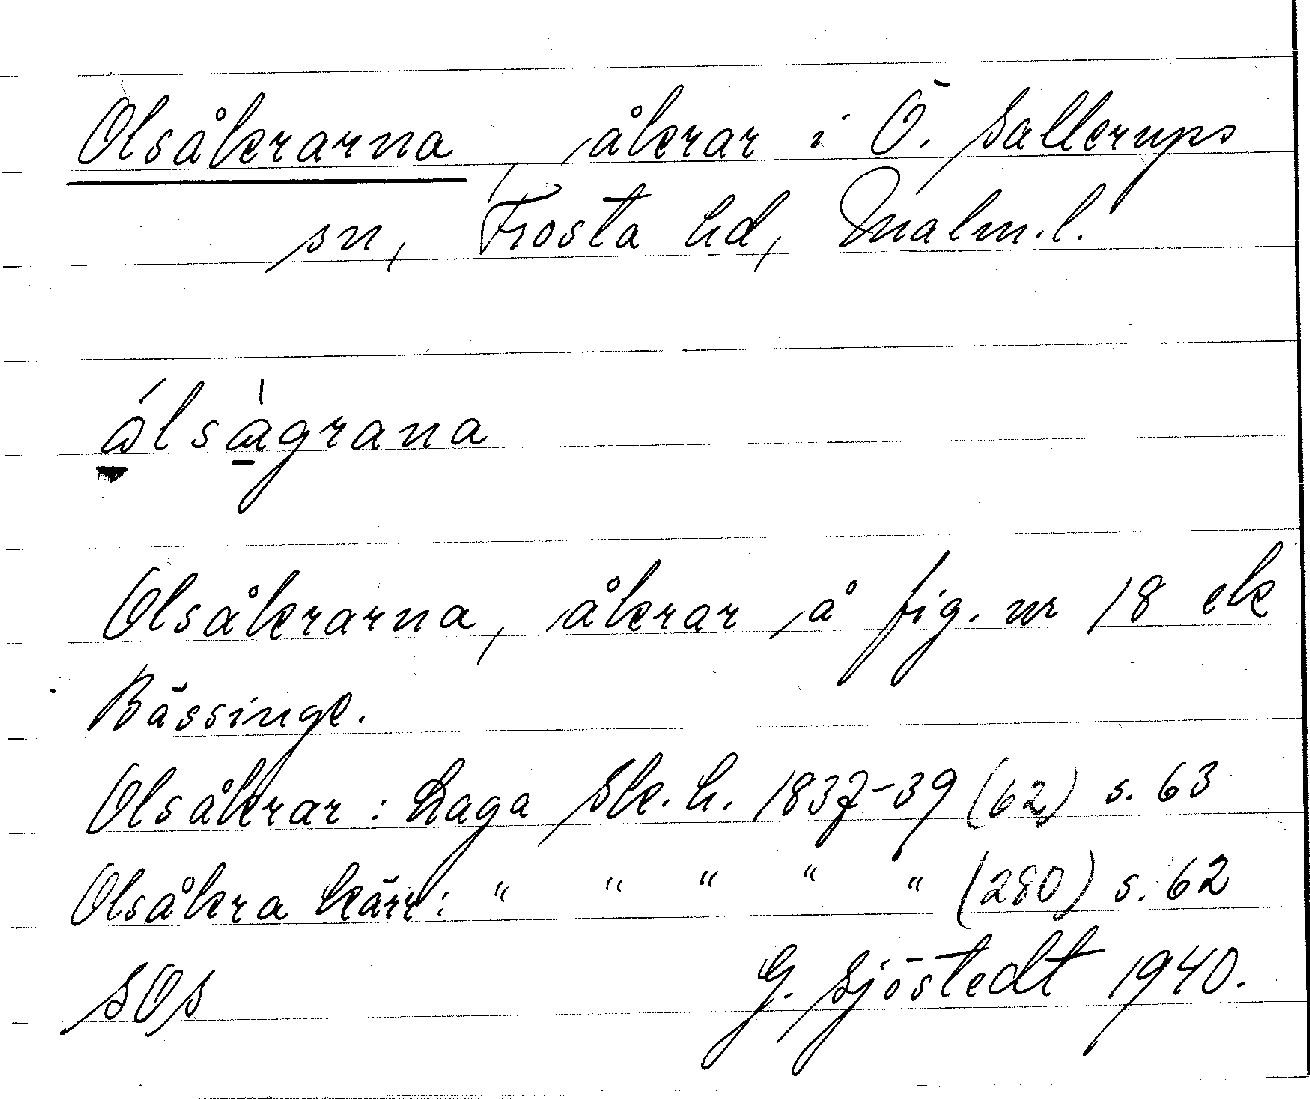 Olsåkrarna, åkrar i Ö. Sallerups
sn, Frosta hd, Malm.l.
ålsågrana
Olsåkrarna, åkrar å fig. nr 18 ek
Bässinge.
Olsåkrar: Laga Sk. h. 1837-39 (62) s. 63
Olsåkra kärr: " " " " " (280) s. 62
SOs G. Sjöstedt 1940.